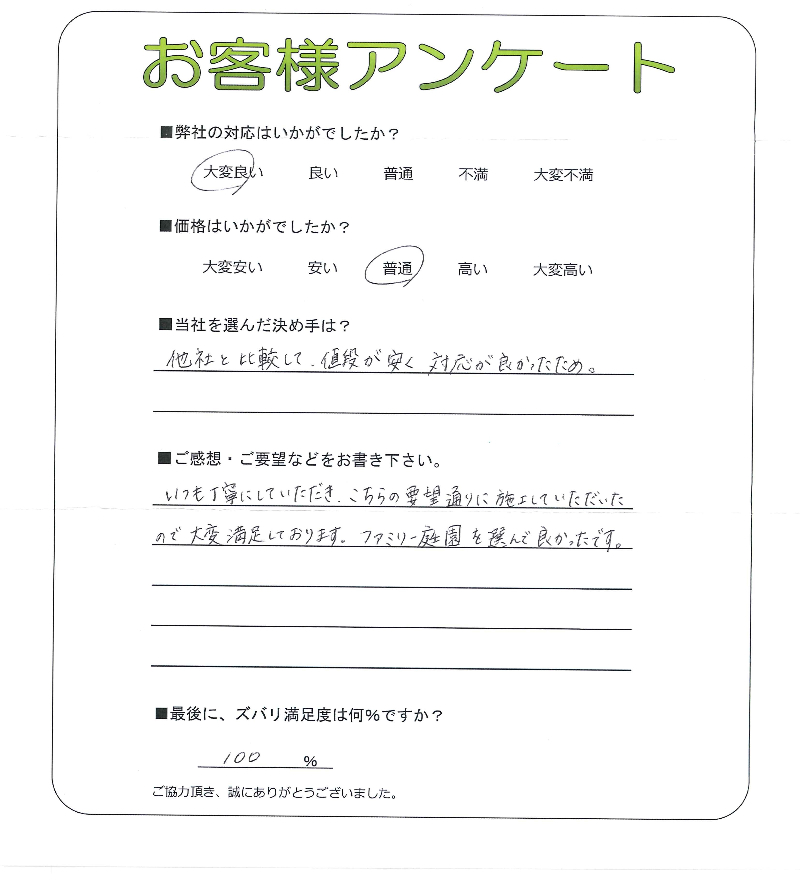 お客様アンケート
■弊社の対応はいかがでしたか？
大変良い 良い 普通 不満 大変不満
■価格はいかがでしたか？
大変安い 安い 普通 高い 大変高い
■当社を選んだ決め手は？
他社と比較して、値段が安く対応が良かったため。
■ご感想・ご要望などをお書き下さい。
いつも丁寧にしていただき、こちらの要望通りに施工していただいた
ので大変満足しております。ファミリー庭園を選んで良かったです。
■最後に、ズバリ満足度は何%ですか？
100 %
ご協力頂き、誠にありがとうございました。